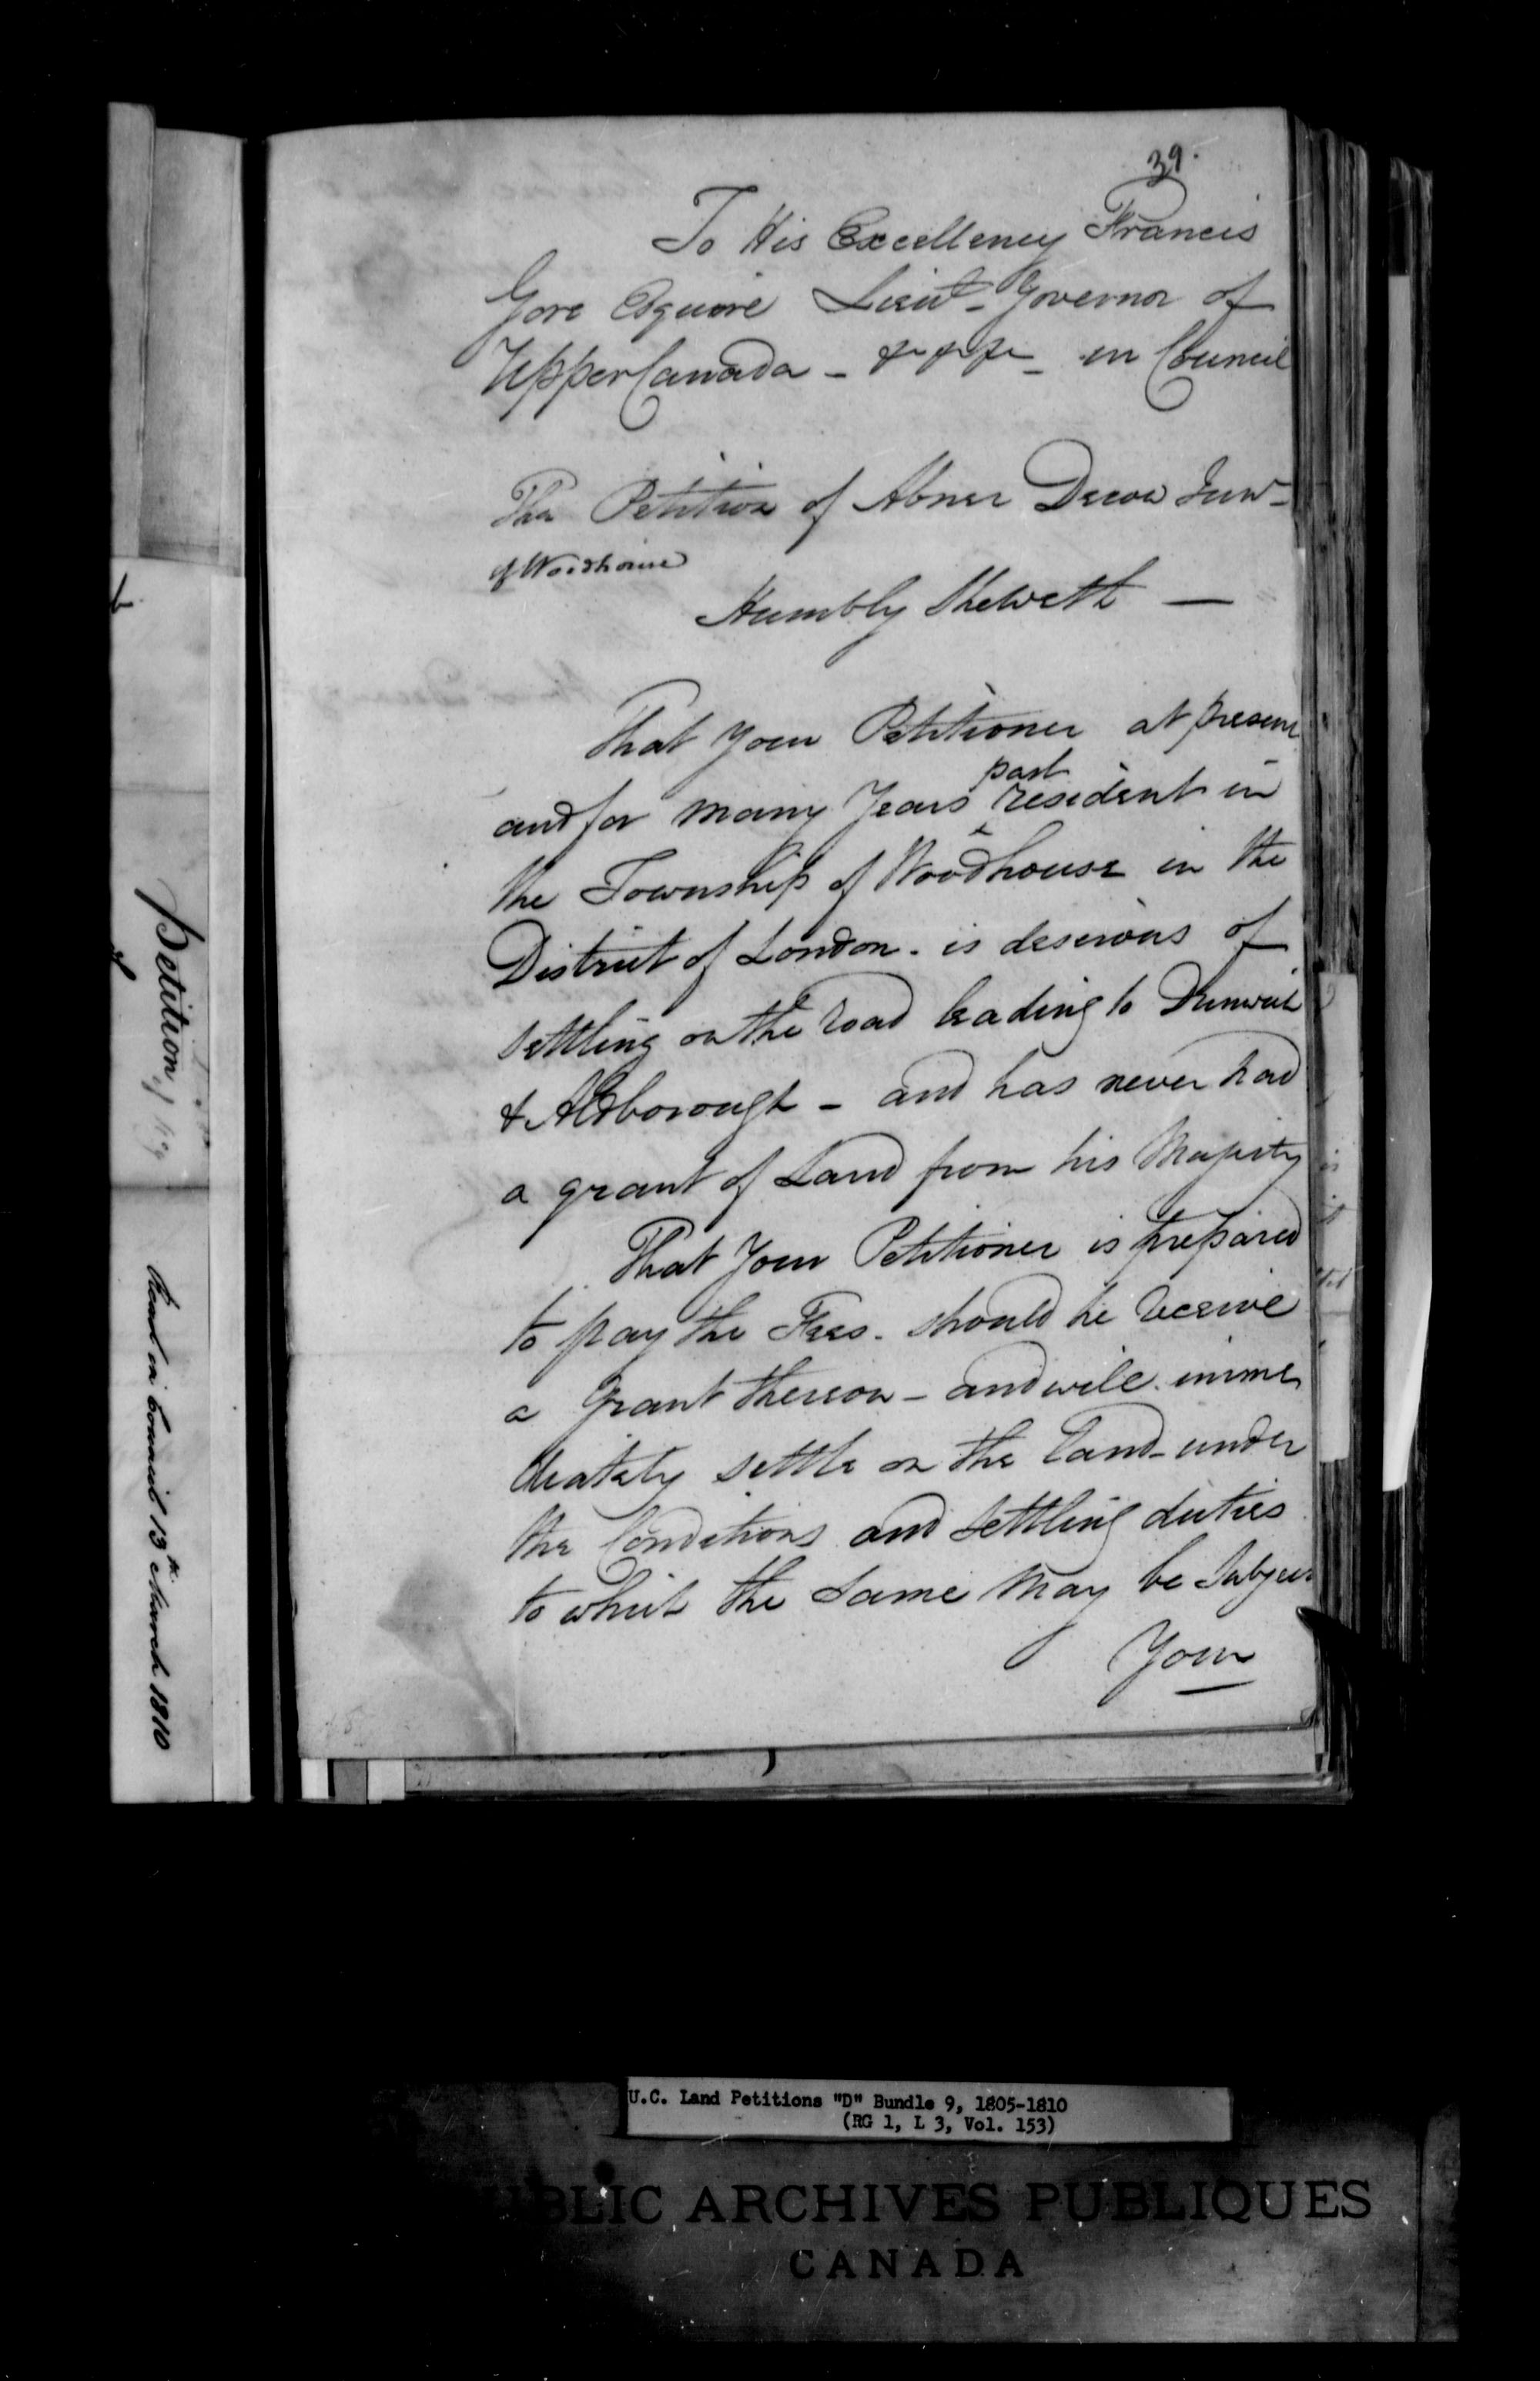 39.
To His Excellency Francis
Gore Esquire Lieut- Governor of
Upper Canada - & & & - in Council
The Petition of Abner Decow Junr-
of Woodhouse
Humbly Sheweth —
That Your Petitioner at present
past
and for many Years ^ resident in
the Township of Woodhouse in the
District of London - is desirous of
settling on the road leading to Dunwich
& Aldborough - and has never had
a grant of Land from his Majesty
That Your Petitioner is prepared
to pay the Fees - should he receive
a Grant thereon - and will imme
diately settle on the Land - under
the Conditions and Settling duties
to which the Same may be Subject
Your
Petition
of
Read in Council 13th March 1810
U.C. Land Petitions "D" Bundle 9, 1805-1810
(RG 1, L 3, Vol. 153)
PUBLIC ARCHIVES PUBLIQUES
CANADA